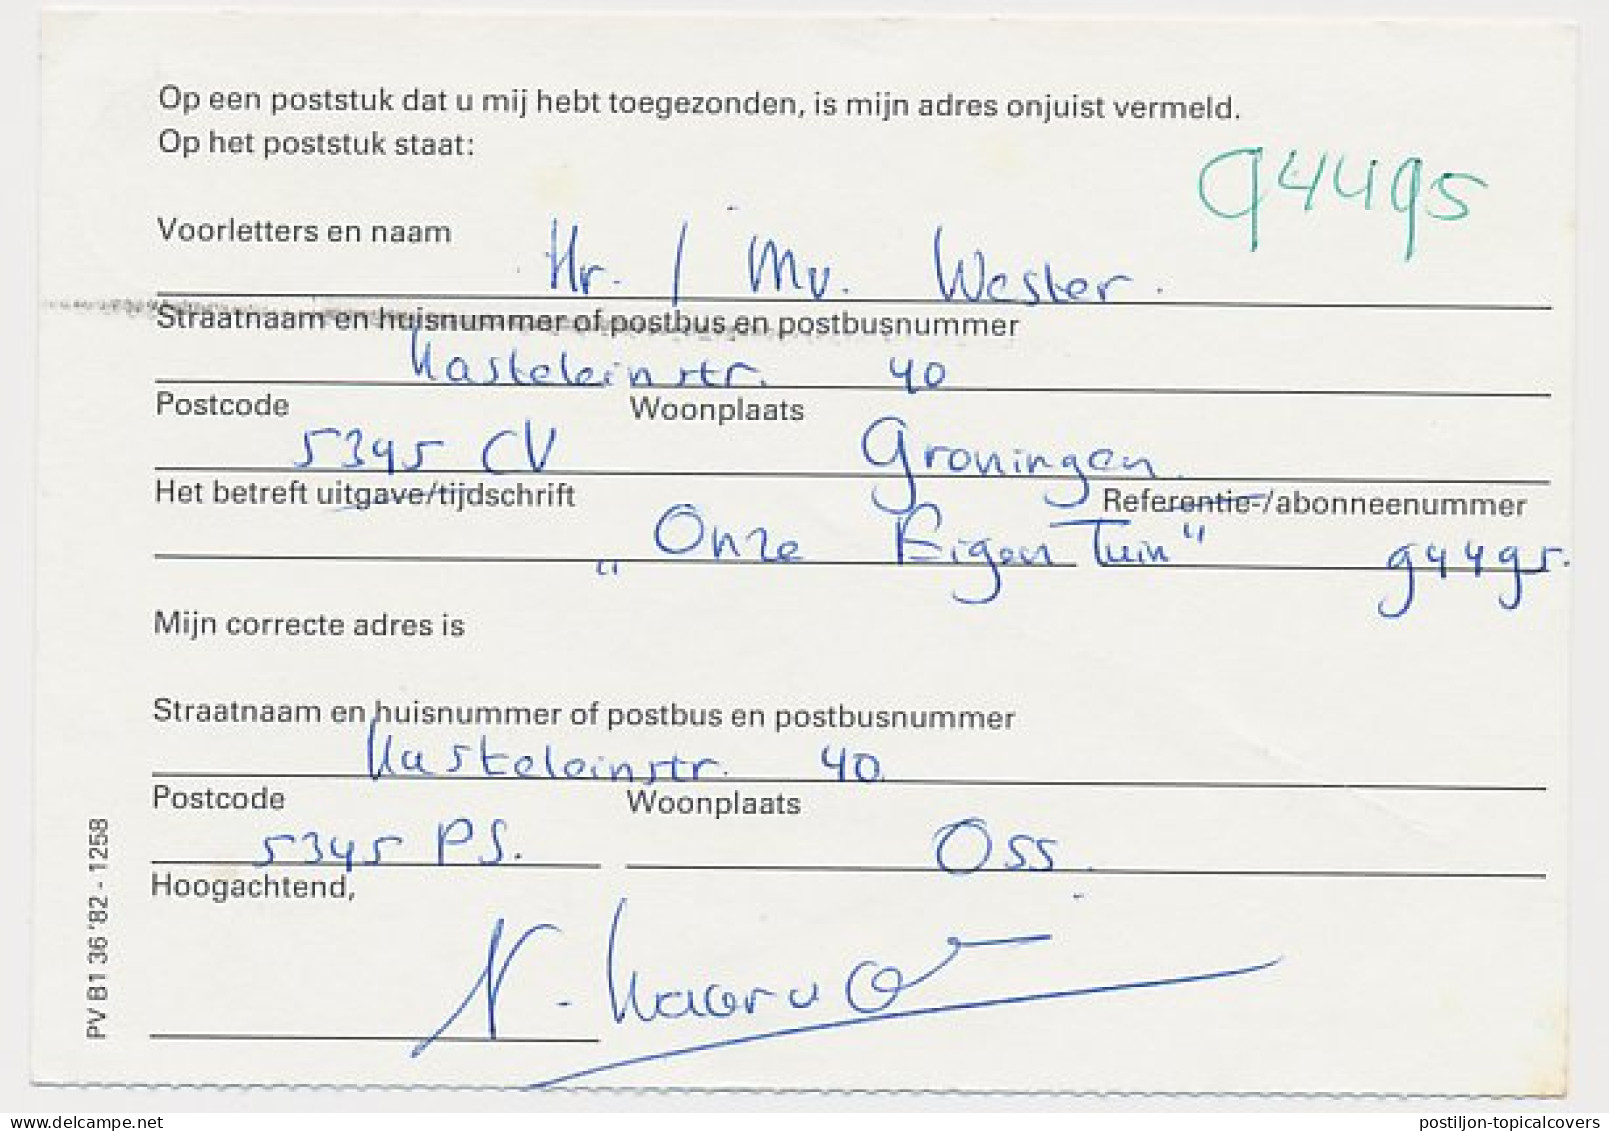 Op een poststuk dat u mij hebt toegezonden, is mijn adres onjuist vermeld.
Op het poststuk staat:
94495
Voorletters en naam
Hr. / Mv. Wester.
Straatnaam en huisnummer of postbus en postbusnummer
Kasteleinstr. 40
Postcode Woonplaats
5345 CV Groningen
Het betreft uitgave/tijdschrift Referentie-/abonneenummer
„Onze Eigen Tuin" 94495.
Mijn correcte adres is
Straatnaam en huisnummer of postbus en postbusnummer
Kasteleinstr. 40
Postcode Woonplaats
5345 PS. Oss.
Hoogachtend,
PV B1 36 '82 - 1258
postiljon-topicalcovers